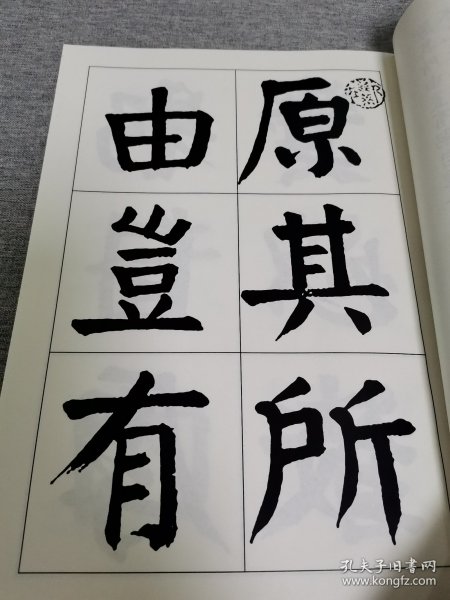 原其所
由豈有
孔夫子旧书网
www.kongfz.com